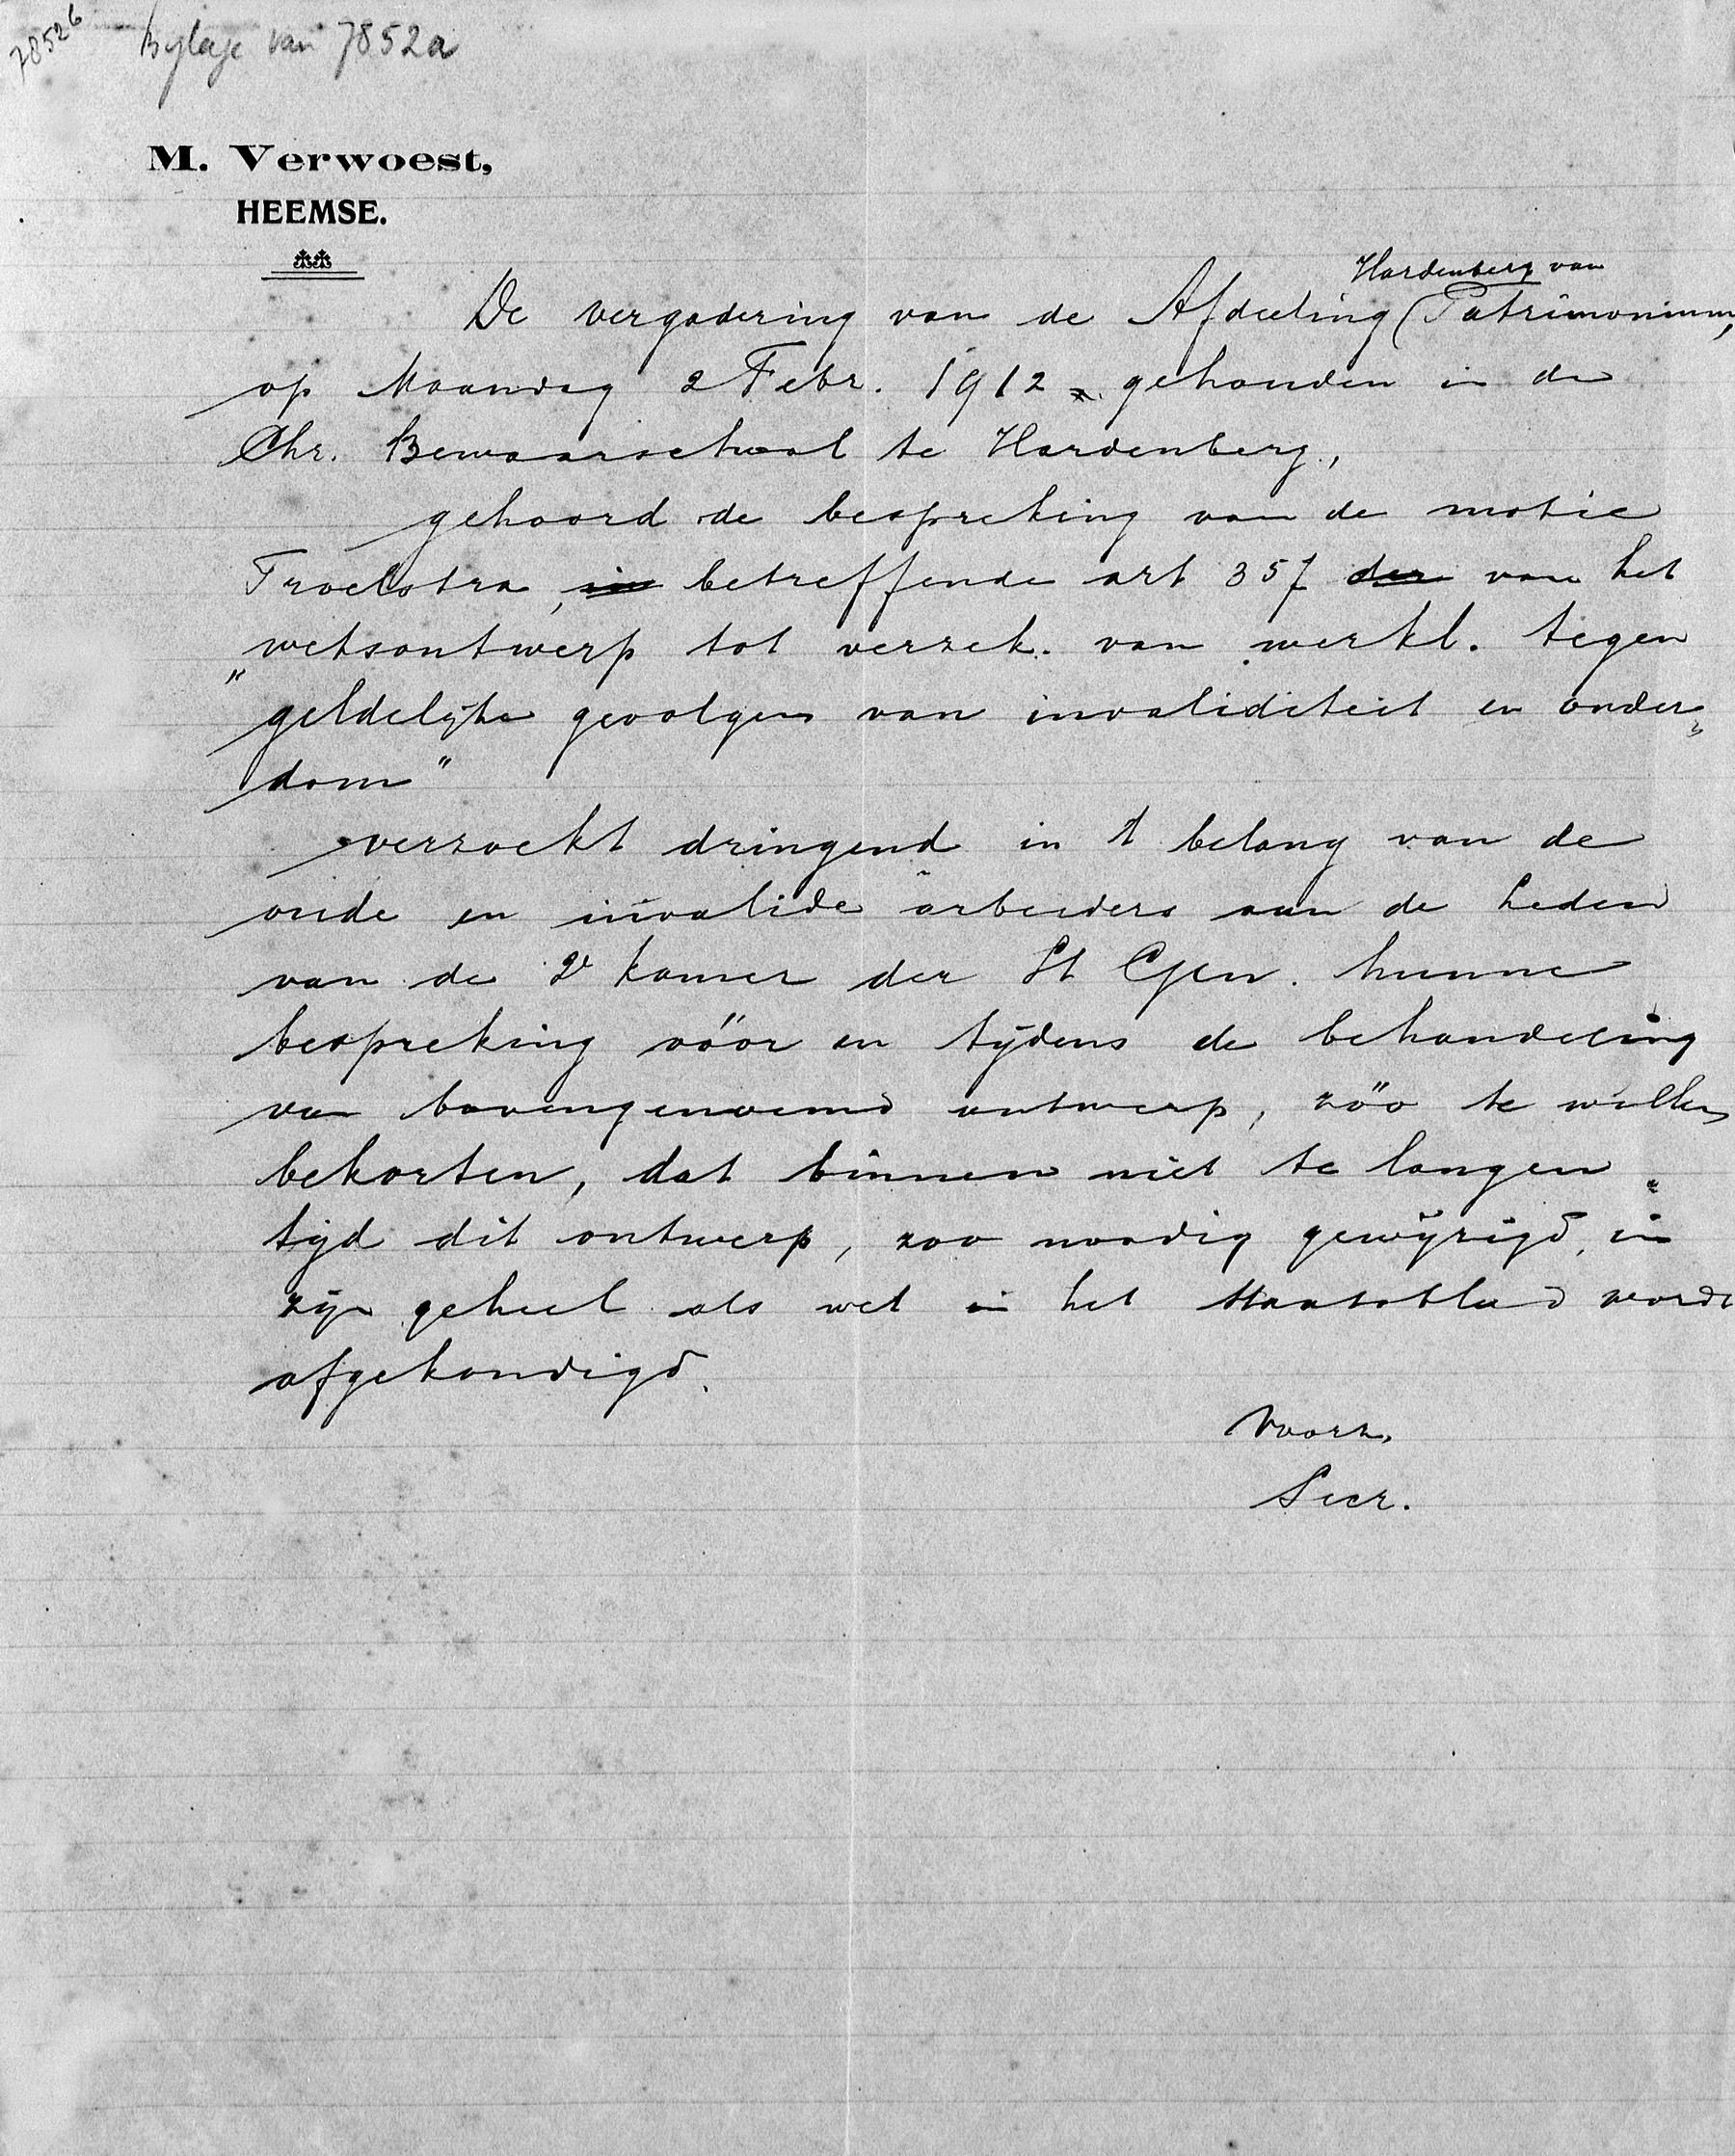 7852b
Bylage van 7852a
M. Verwoest,
HEEMSE.
Hardenberg van
De vergadering van de Afdeeling (Patrimonium,
op Maandag 2 Febr. 1912 gehouden in de
Chr. Bewaarschool te Hardenberg,
gehoord de bespreking van de motie
Troelstra, in betreffende art 357 der van het
wetsontwerp tot verzek. van werkl. tegen
"geldelijke gevolgen van invaliditeit en ouder-
dom"
verzoekt dringend in 't belang van de
oude en invalide arbeiders aan de Leden
van de 2e kamer der St Gen. hunne
bespreking vóór en tijdens de behandeling
van bovengenoemd ontwerp, zóó te willen
bekorten, dat binnen niet te langen
tijd dit ontwerp, zoo noodig gewijzigd, in
zijn geheel als wet in het Staatsblad wordt
afgekondigd.
Voorz.
Secr.